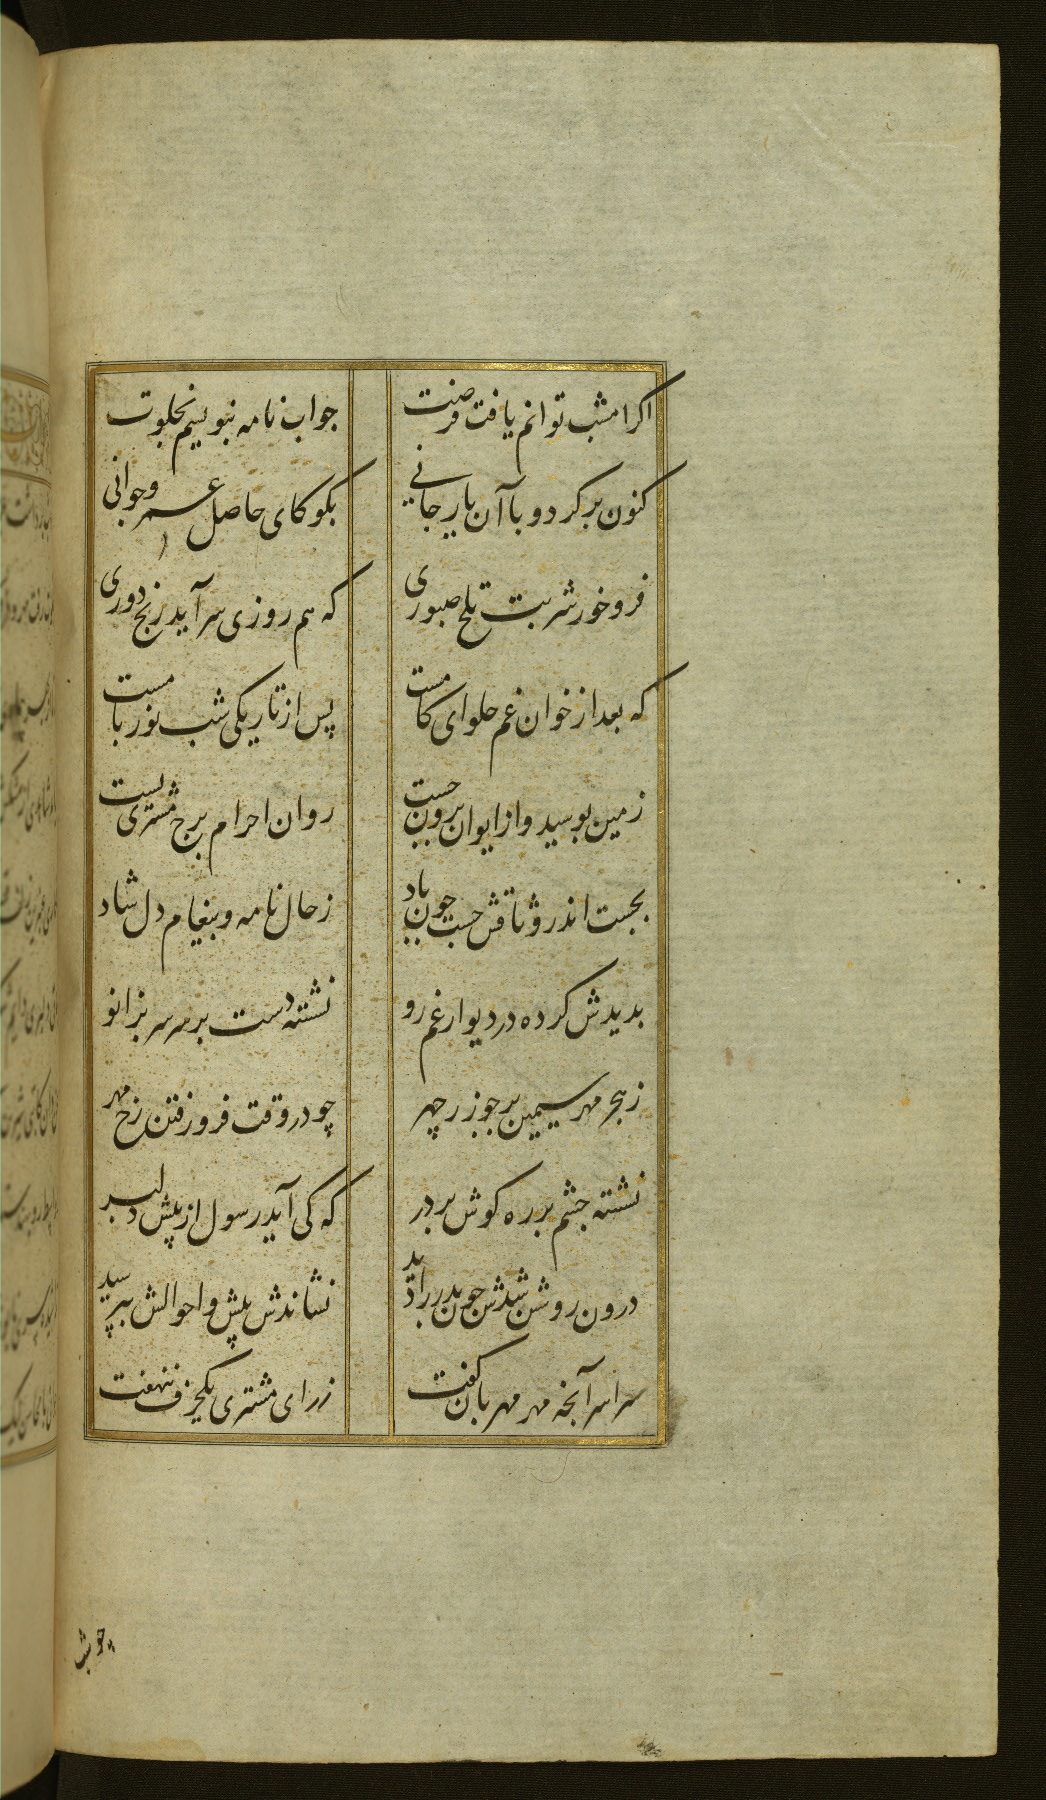 اکر امشب توانم یافت فرصت
جواب نامه بنویسم بخلوت
کنون برکرد و با آن یار جانی
بکو کای حاصل عمر و جوانی
فرو خور شربت تلخ صبوری
که هم روزی سر آید رنج دوری
که بعد از خوان غم حلوای کامست
پس از تاریکی شب نور بامست
زمین بوسید و از ایوان برون جست
روان احرام برج مشتری بست
بجست اندر وثاقش جست چون باد
ز حال نامه و پیغام دل شاد
بدیدش کرده در دیوار غم رو
نشته دست بر سر سر بزانو
ز هجر مهر سیمین بر چو زر چهر
چو در وقت فرو رفتن رخ مهر
نشته چشم بر ره کوش بر در
که کی آید رسول از پیش دلبر
درون روشن شدش چون بدر را دید
نشاندش پیش و احوالش بپرسید
سراسر آنچه مهر مهربان کفت
ز رای مشتری یکحرف ننهفت
چو شب